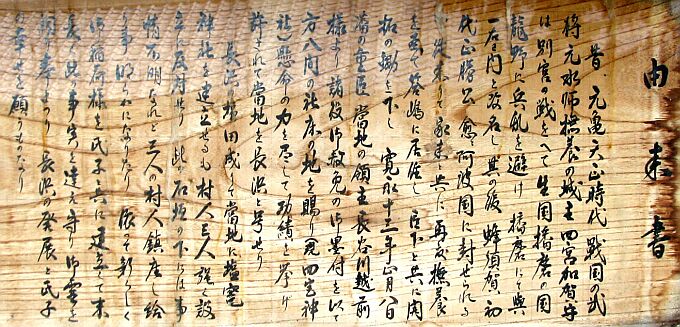 由来書
昔、元亀天正時代 戦国の武
将元水師撫養の城主四宮加賀守
は別宮の戦をへて生国播磨の国
龍野に兵乱を避け 播磨にて與
一左ヱ門と改名し其の後 蜂須賀初
代正勝公愈阿波国に封せられる
や 来りて家来共に再度撫養
を 答嶋に居住し 臣下と共に開
拓の鍬を下し 寛永十二年正月八日
藩の重臣 当地の領主長谷川越前
様より諸役御赦免の御墨付を以て
方八間の社床の地を賜り(元四宮神
社)懸命の力を尽して功績を挙げ
許されて當地を長浜と号せり
長浜の塩田成りて當地に塩竃
神社を建立せるも村人三人 設
立に反対せり此の石垣の下には事
情不明なれど三人の村人鎮座し給
う事明らかになりたり 依て新らしく
御稲荷様を氏子共に建立して末
長く此の事実を 守り御霊を
祠り奉まつり 長浜の発展と氏子
の幸せを願うものなり